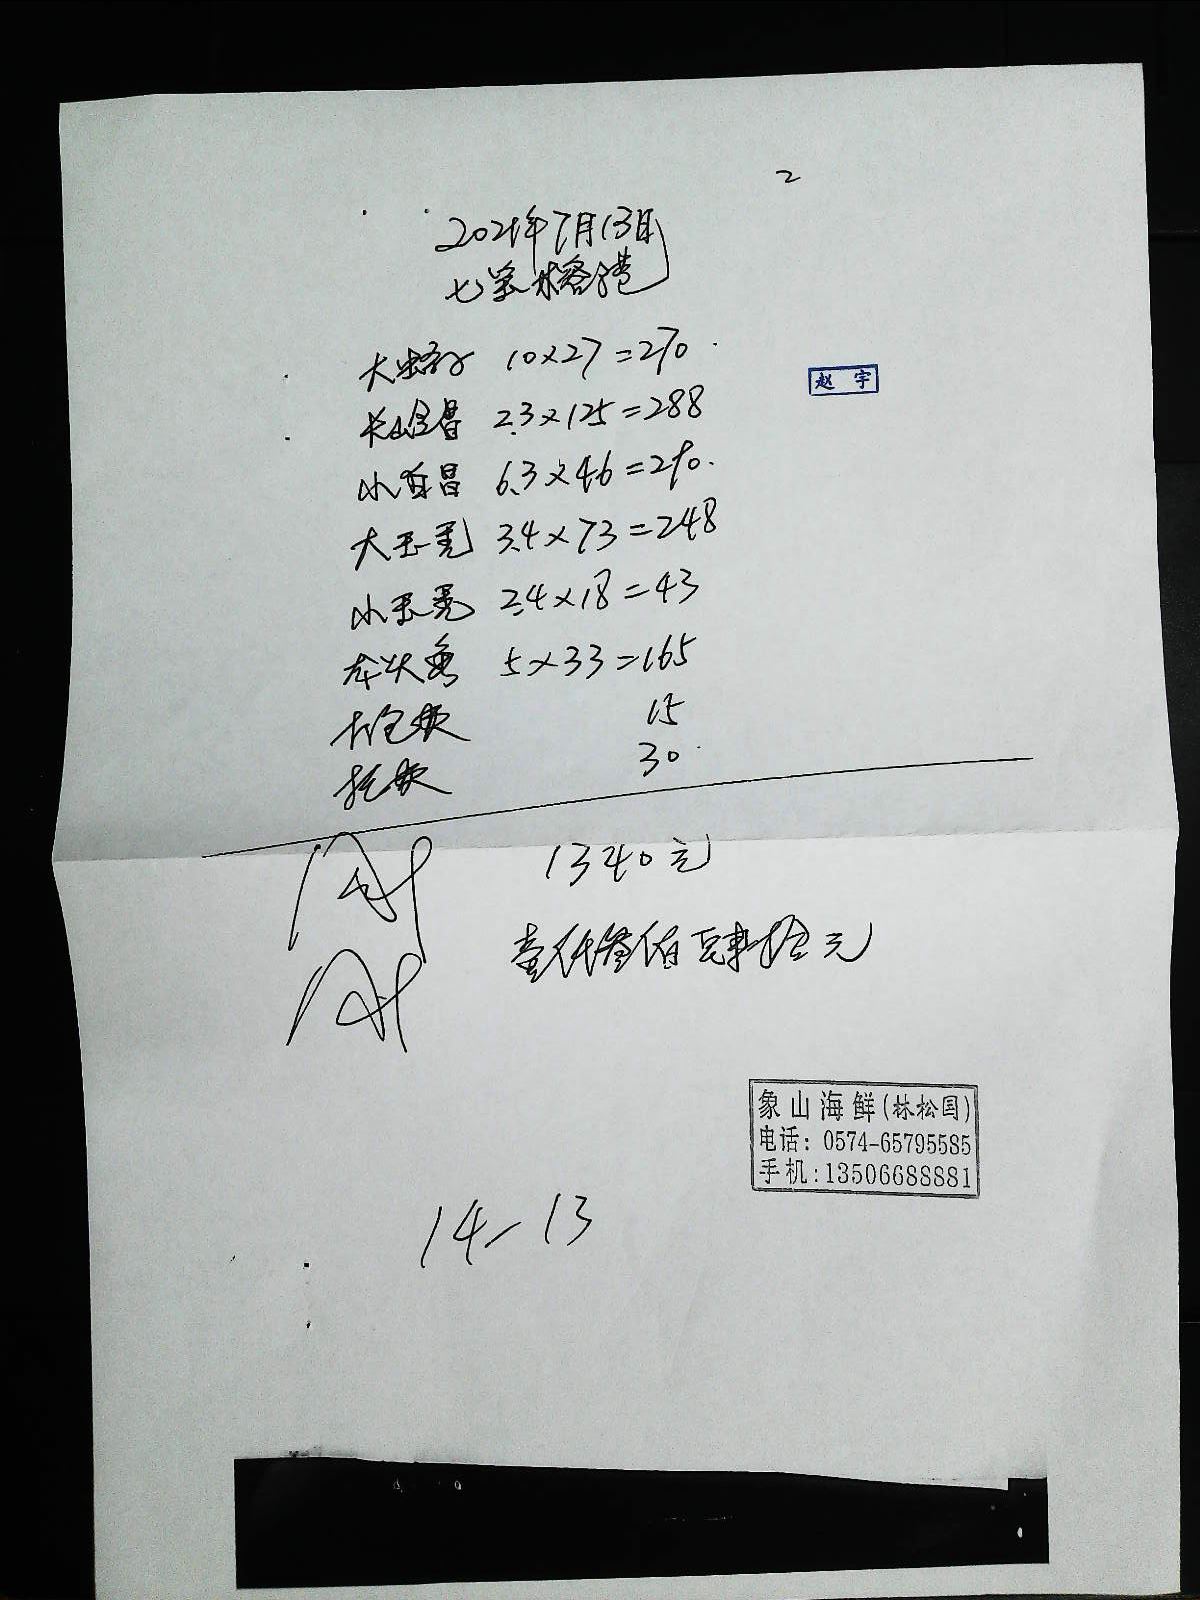 2
2021年7月13日
七
大 10×27=270
赵宇
2.3×125=288
小 昌 6.3×46=290
大玉秃 3.4×73=248
小玉秃 2.4×18=43
5×33=165
打包费 15
托费 30
1340元
壹仟叁佰肆拾元
象山海鲜(林松国)
电话: 0574-65795585
手机:13506688881
14-13